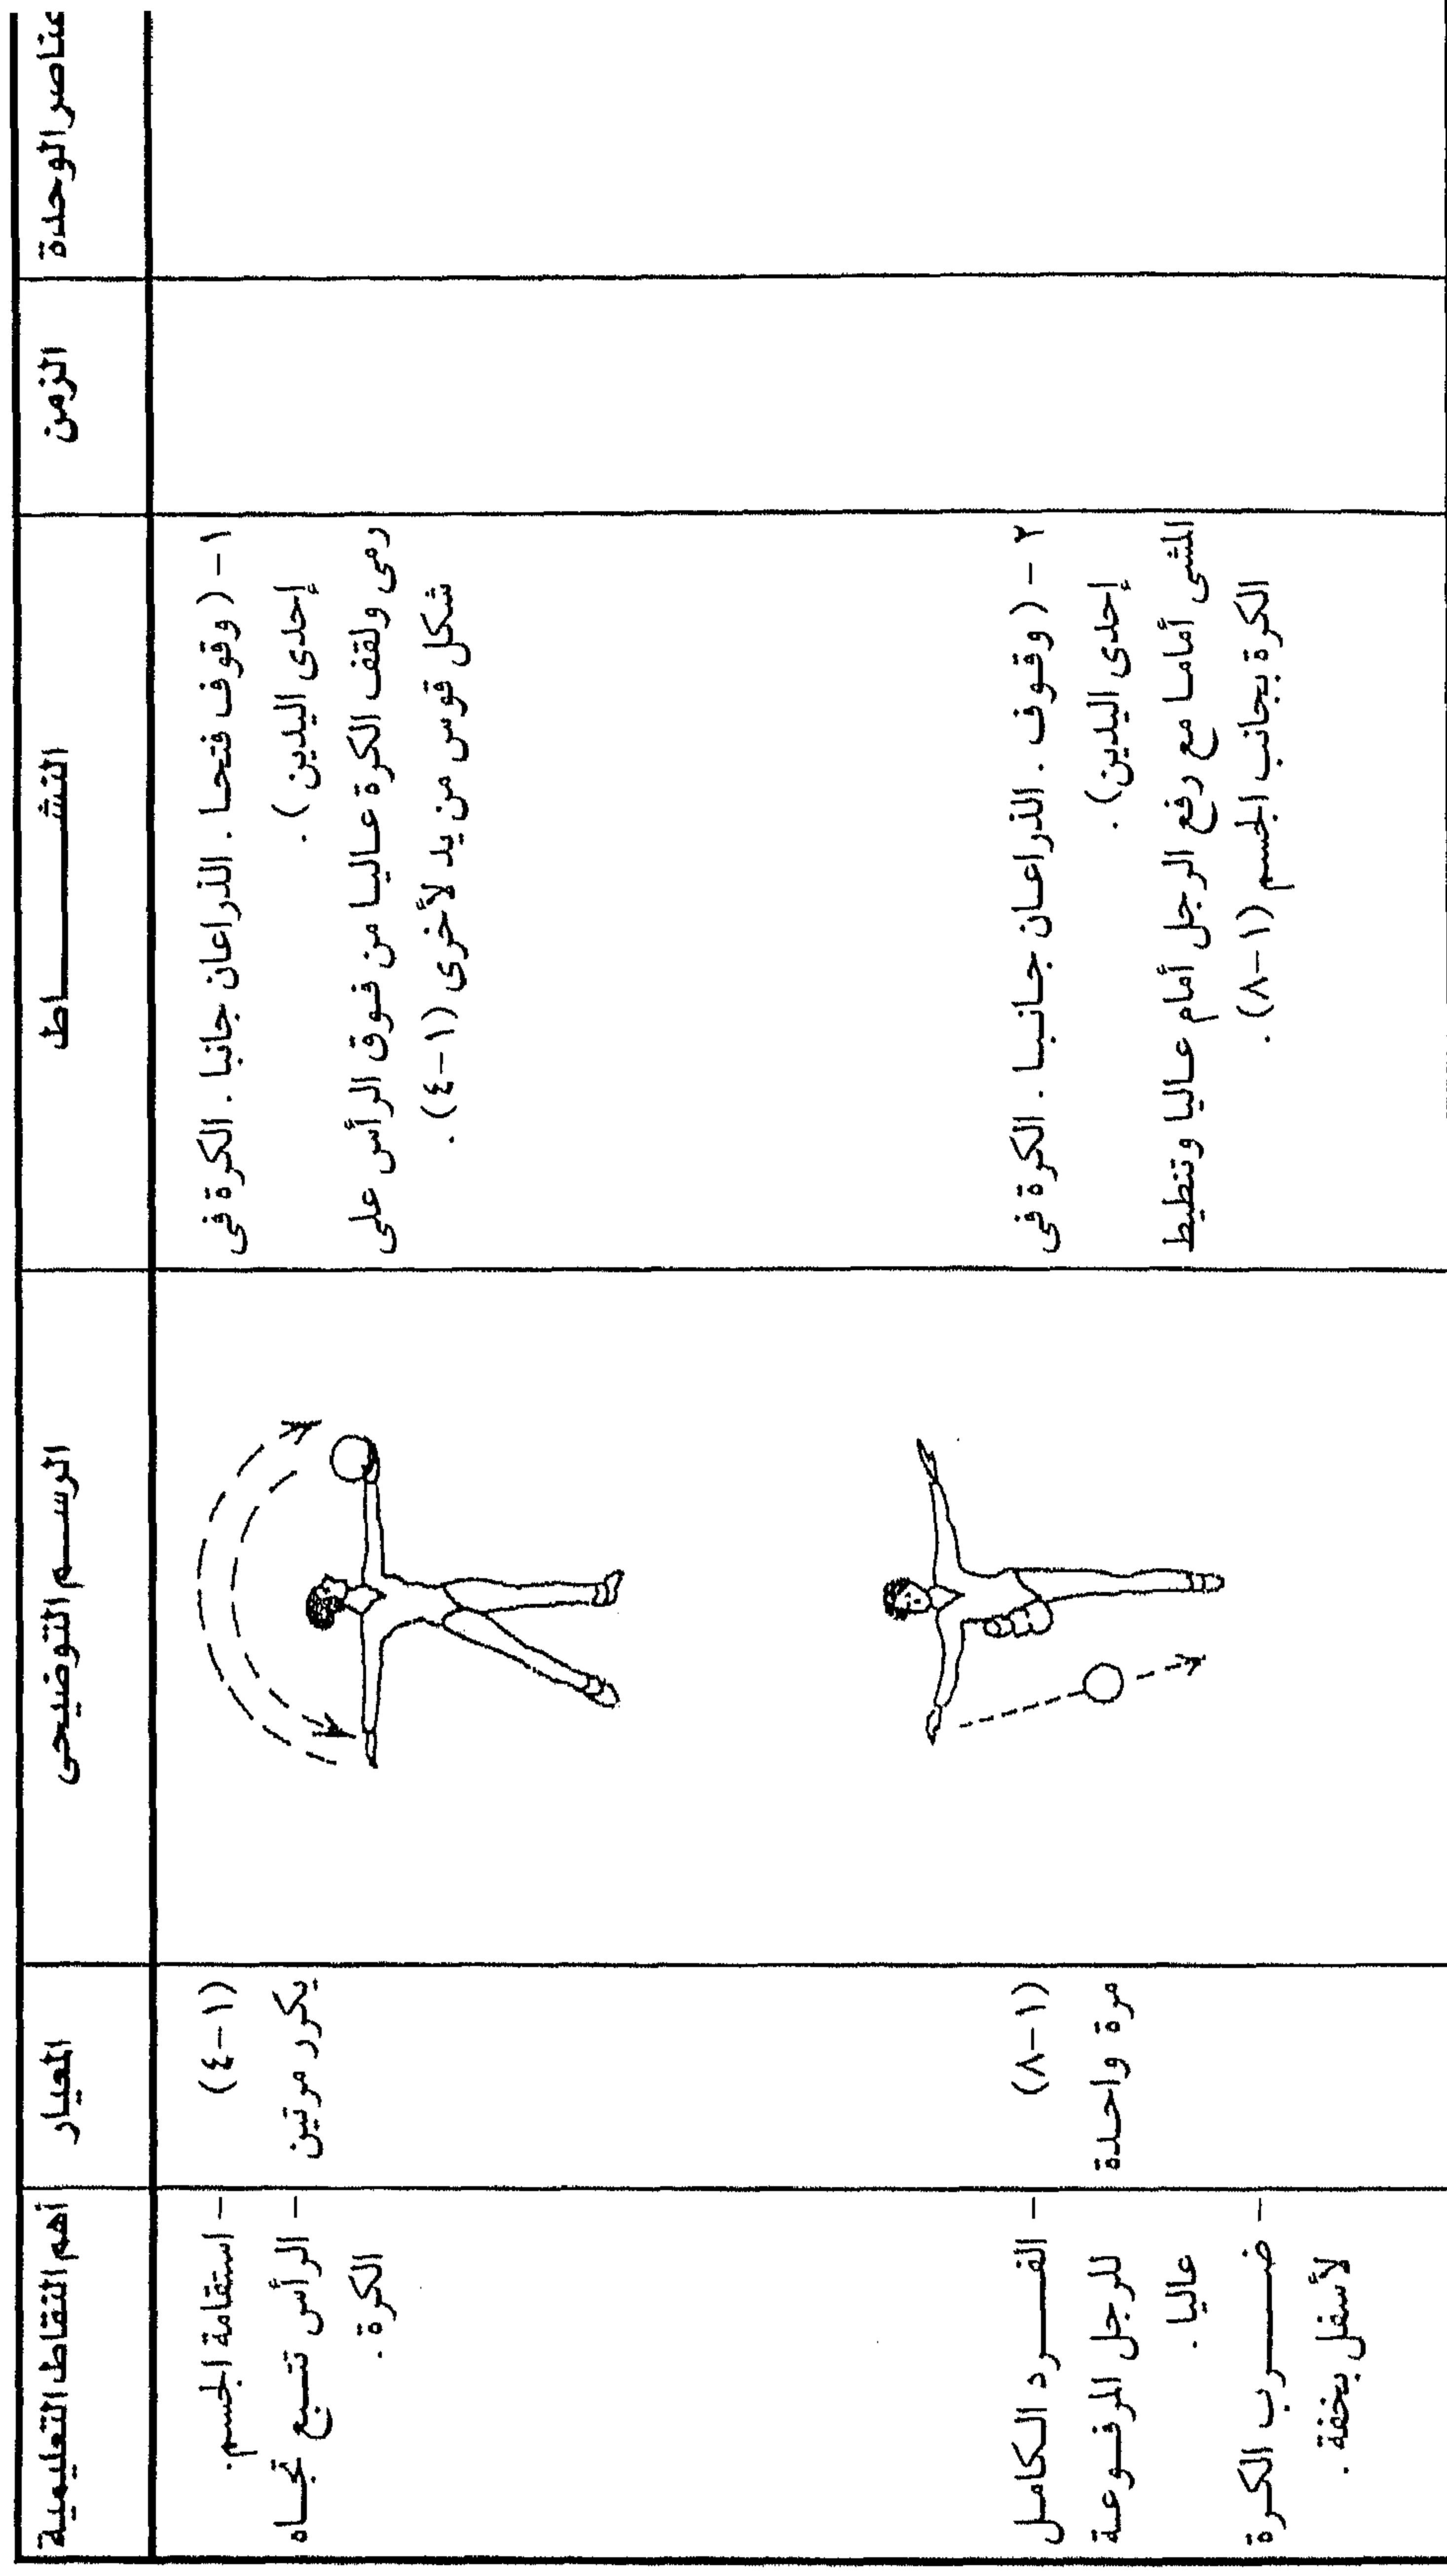 عناصر الوحدة
الزمن
النشـــــــاط
الرســم التوضيحى
المعيار
أهم النقاط التعليمية
١ - (وقوف فتحا . الذراعان جانبا . الكرة فى
إحدى اليدين) .
رمى ولقف الكرة عاليا من فوق الرأس على
شكل قوس من يد لأخرى (١-٤) .
(١-٤)
يكرر مرتين
- استقامة الجسم .
- الرأس تتبع تجاه
الكرة .
٢ - (وقوف . الذراعان جانبا . الكرة فى
إحدى اليدين) .
المشى أماما مع رفع الرجل أمام عاليا وتنطيط
الكرة بجانب الجسم (١-٨) .
(١-٨)
مرة واحدة
- الفـــرد الكامل
للرجل المرفوعة
عاليا .
- ضـــرب الكرة
لأسفل بخفة .